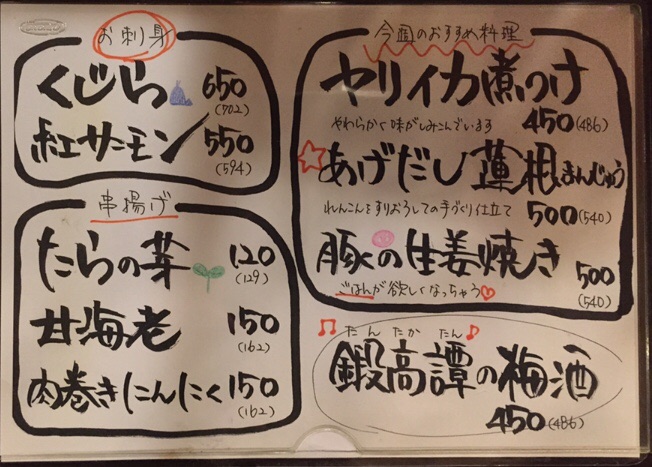 お刺身
くじら 650
(702)
紅サーモン 550
(594)
串揚げ
たらの芽 120
(129)
甘海老 150
(162)
肉巻きにんにく 150
(162)
今週のおすすめ料理
ヤリイカ煮つけ
やわらかく味がしみこんでいます 450(486)
あげだし蓮根まんじゅう
れんこんをすりおろしての手づくり仕立て 500(540)
豚の生姜焼き 500
ごはんが欲しくなっちゃう (540)
たん たか たん
鍛高譚の梅酒
450(486)